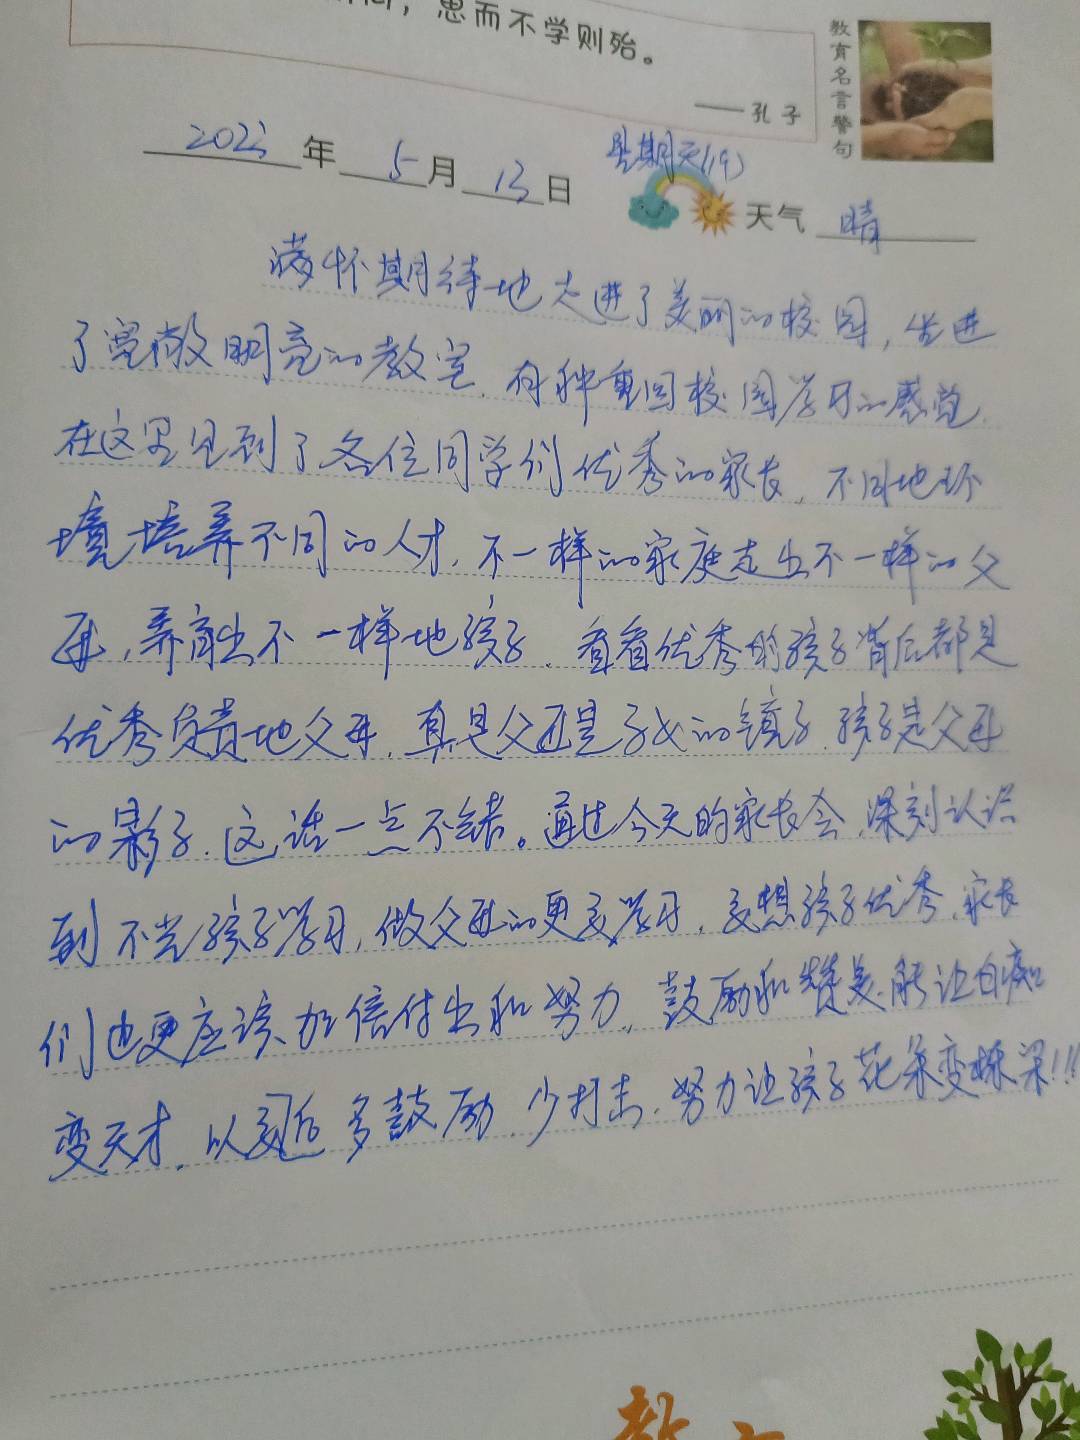 思而不学则殆。
——孔子
教育名言警句
2023年5月13日
星期天(19)
天气 晴
满怀期待地走进了美丽的校园，步进
了宽敞明亮的教室，有种重回校园学习的感觉，
在这里见到了各位同学们优秀的家长，不同地环
境培养不同的人才，不一样的家庭走出不一样的父
母，养育出不一样地孩子，看看优秀的孩子背后都是
优秀负责地父母，真是父母是子女的镜子，孩子是父母
的影子，这话一点不错。通过今天的家长会，深刻认识
到不光孩子学习，做父母的更要学习，要想孩子优秀，家长
们也更应该加倍付出和努力，鼓励和赞美能让白痴
变天才，以后多鼓励，少打击，努力让孩子花朵变栋梁!!!